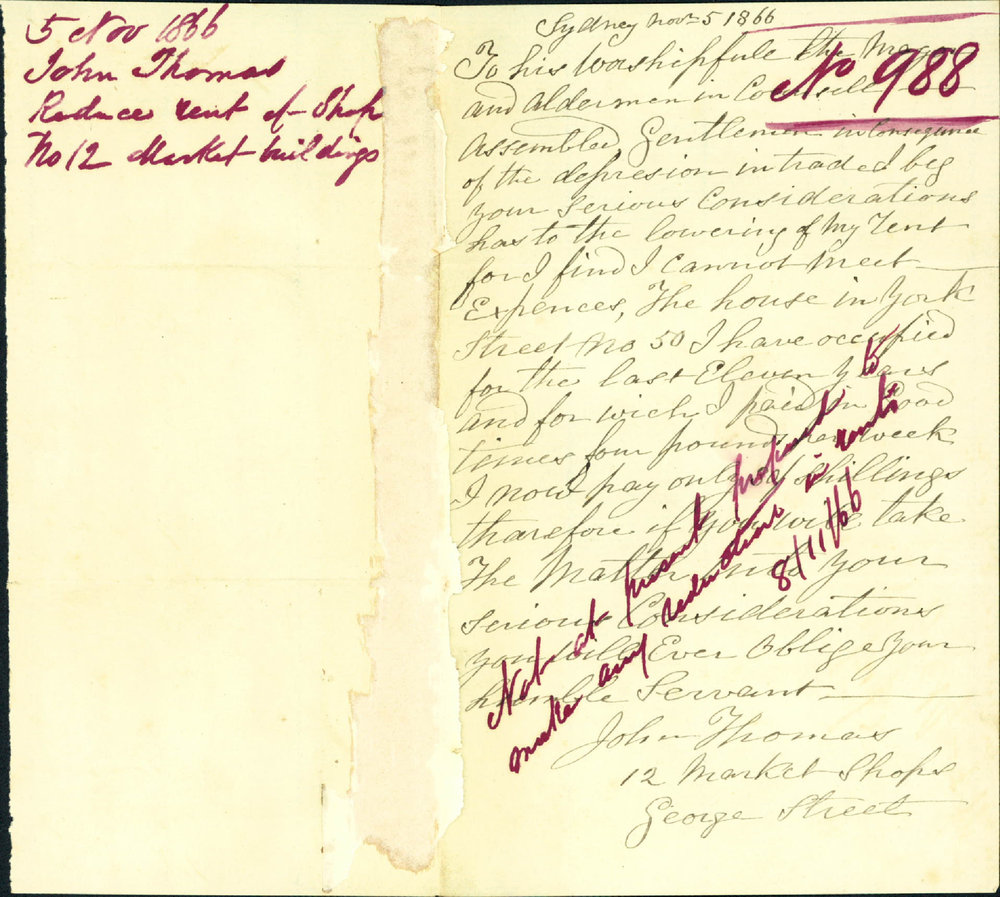 5 Nov 1866
John Thomas
Reduce rent of Shop
No 12 Market buildings
Sydney Novr 5 1866
No 988
To his Worshipfule the Mayor
and Aldermen in Councill
Assembled, Gentlemen in Consequence
of the depresion in trade I beg
your serious Considerations
has to the lowering of My Rent
for I find I Cannot Meet
Expences, The house in York
Street No 50 I have occupied
for the last Eleven years
and for wich I paid in Good
times four pounds per week
I now pay only shillings
therefore if you will take
The Matter into your
serious Considerations
you will Ever Oblige Your
humble Servant
John Thomas
12 Market Shops
George Street
Not at present prepared to
make any reductions in rents
8/11/66